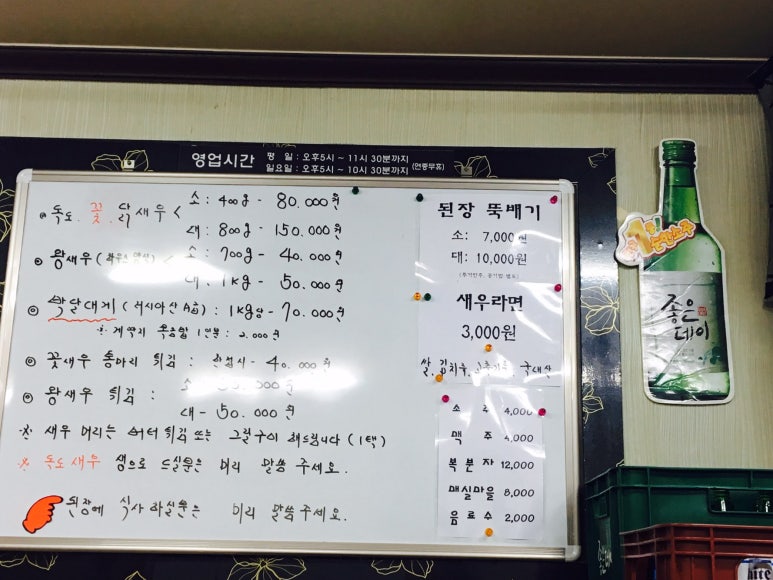 영업시간 평 일 : 오후5시 ~ 11시 30분까지 (연중무휴)
일요일 : 오후5시 ~ 10시 30분까지
독도. 꽃. 닭새우 < 소 : 400g - 80.000원
대 : 800g - 150.000원
왕새우 ( < 소 : 700g - 40.000원
대 : 1kg - 50.000원
박달대게 (러시아산 A급) : 1kg당 - 70.000원
1인분 : 2.000원
꽃새우 통마리 튀김 : 한접시 - 40.000원
왕새우 튀김 : 소
대 - 50.000원
※ 새우 머리는 버터 튀김 또는 그릴구이 해드립니다 (1택)
※ 독도새우 생으로 드실분은 미리 말씀 주세요.
된장에 식사하실분은 미리 말씀주세요.
된장 뚝배기
소: 7,000원
대: 10,000원
새우라면
3,000원
쌀, 김치 국내산
소 주 4,000
맥 주 4,000
복분자 12,000
매실마을 8,000
음료수 2,000
좋은
데이
hite